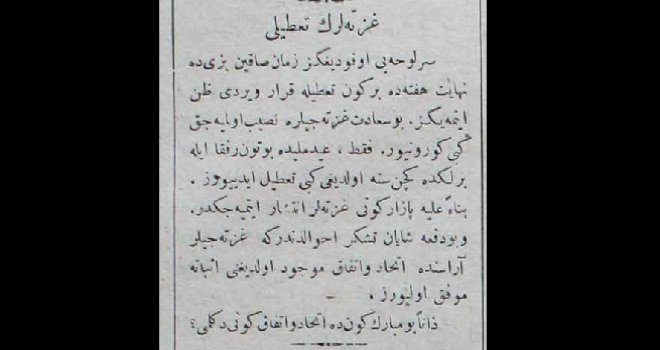 غزته‌لرك تعطيلى
سرلوحه‌يى اوقوديغكز زمان صاقين بزى ده
نهايت هفته‌ده بركون تعطيله قرار ويردى ظن
ايتمه‌يكز. بو سعادت غزته‌جيلره نصيب اوليه‌جق
كبى كورونيور. فقط، عيد مليده بوتون رفقا ايله
برلكده كچن سنه اولديغى كبى تعطيل ايدييورز.
بناءً عليه پازاركونى غزته‌لر انتشار ايتميه‌جكدر.
و بو دفعه شايان تشكر احوالدندركه غزته‌جيلر
آراسنده اتحاد و اتفاق موجود اولديغنى اثباته
موفق اوليورز.
ذاتاً بو مبارك كون ده اتحاد و اتفاق كونى دكلمى؟